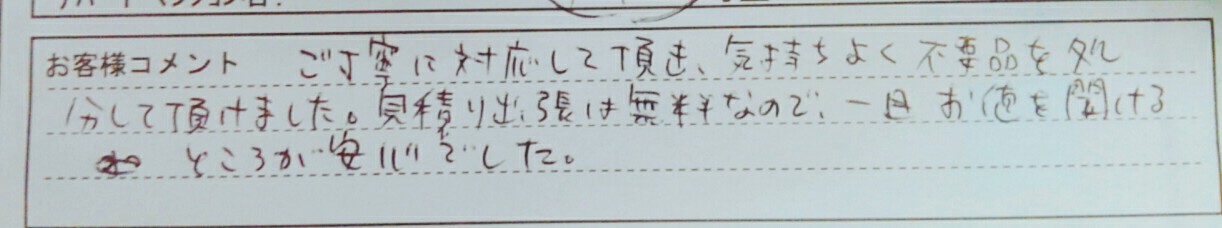 お客様コメント ご丁寧に対応して頂き、気持ちよく不要品を処
分して頂けました。見積り出張は無料なので、一旦お値を聞ける
ところが安心でした。